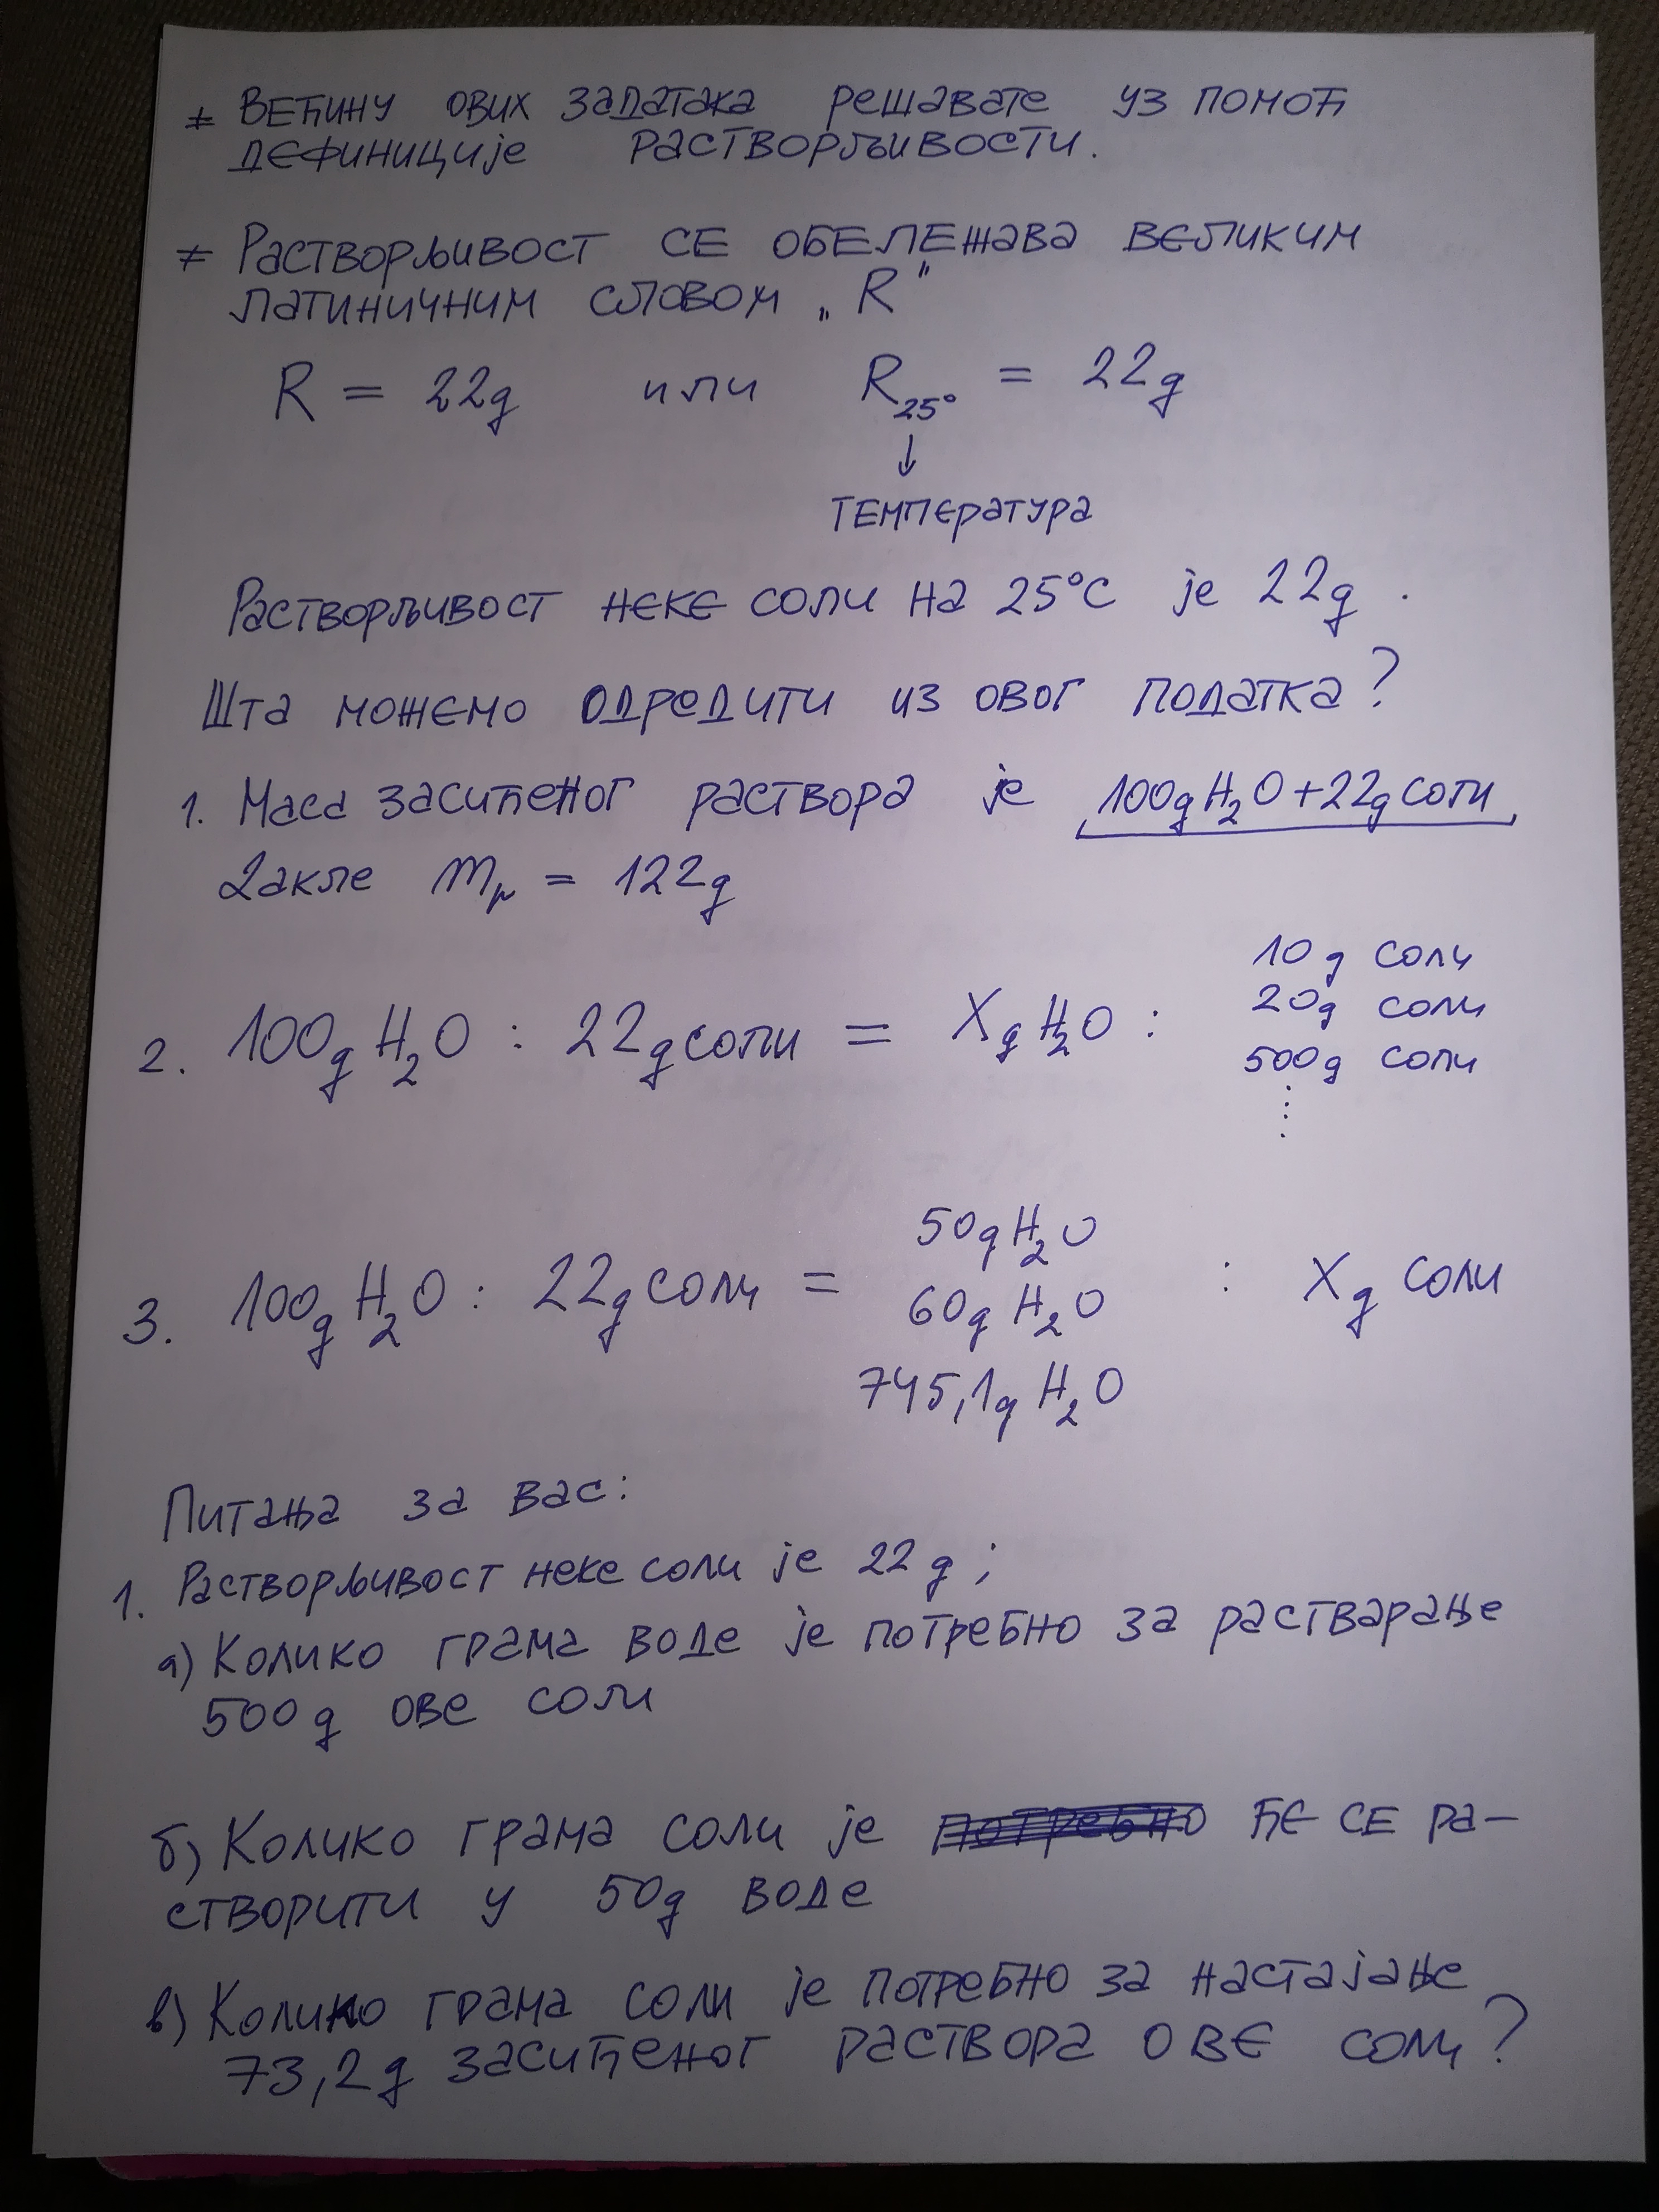 * Већину ових задатака решавате уз помоћ
дефиниције растворљивости.
* Растворљивост се обележава великим
латиничним словом „R"
R = 22g или R25° = 22g
↓
температура
Растворљивост неке соли на 25°C је 22g.
Шта можемо одредити из овог податка?
1. Маса засићеног раствора је 100g H2O + 22g соли,
Дакле mр = 122g
10g соли
20g соли
2. 100g H2O : 22g соли = Xg H2O :
500g соли
⋮
50g H2O
3. 100g H2O : 22g соли = 60g H2O : Xg соли
745,1g H2O
Питања за вас:
1. Растворљивост неке соли је 22g;
а) Колико грама воде је потребно за растварање
500g ове соли
б) Колико грама соли је потребно ће се ра-
створити у 50g воде
в) Колико грама соли је потребно за настајање
73,2g засићеног раствора ове соли?